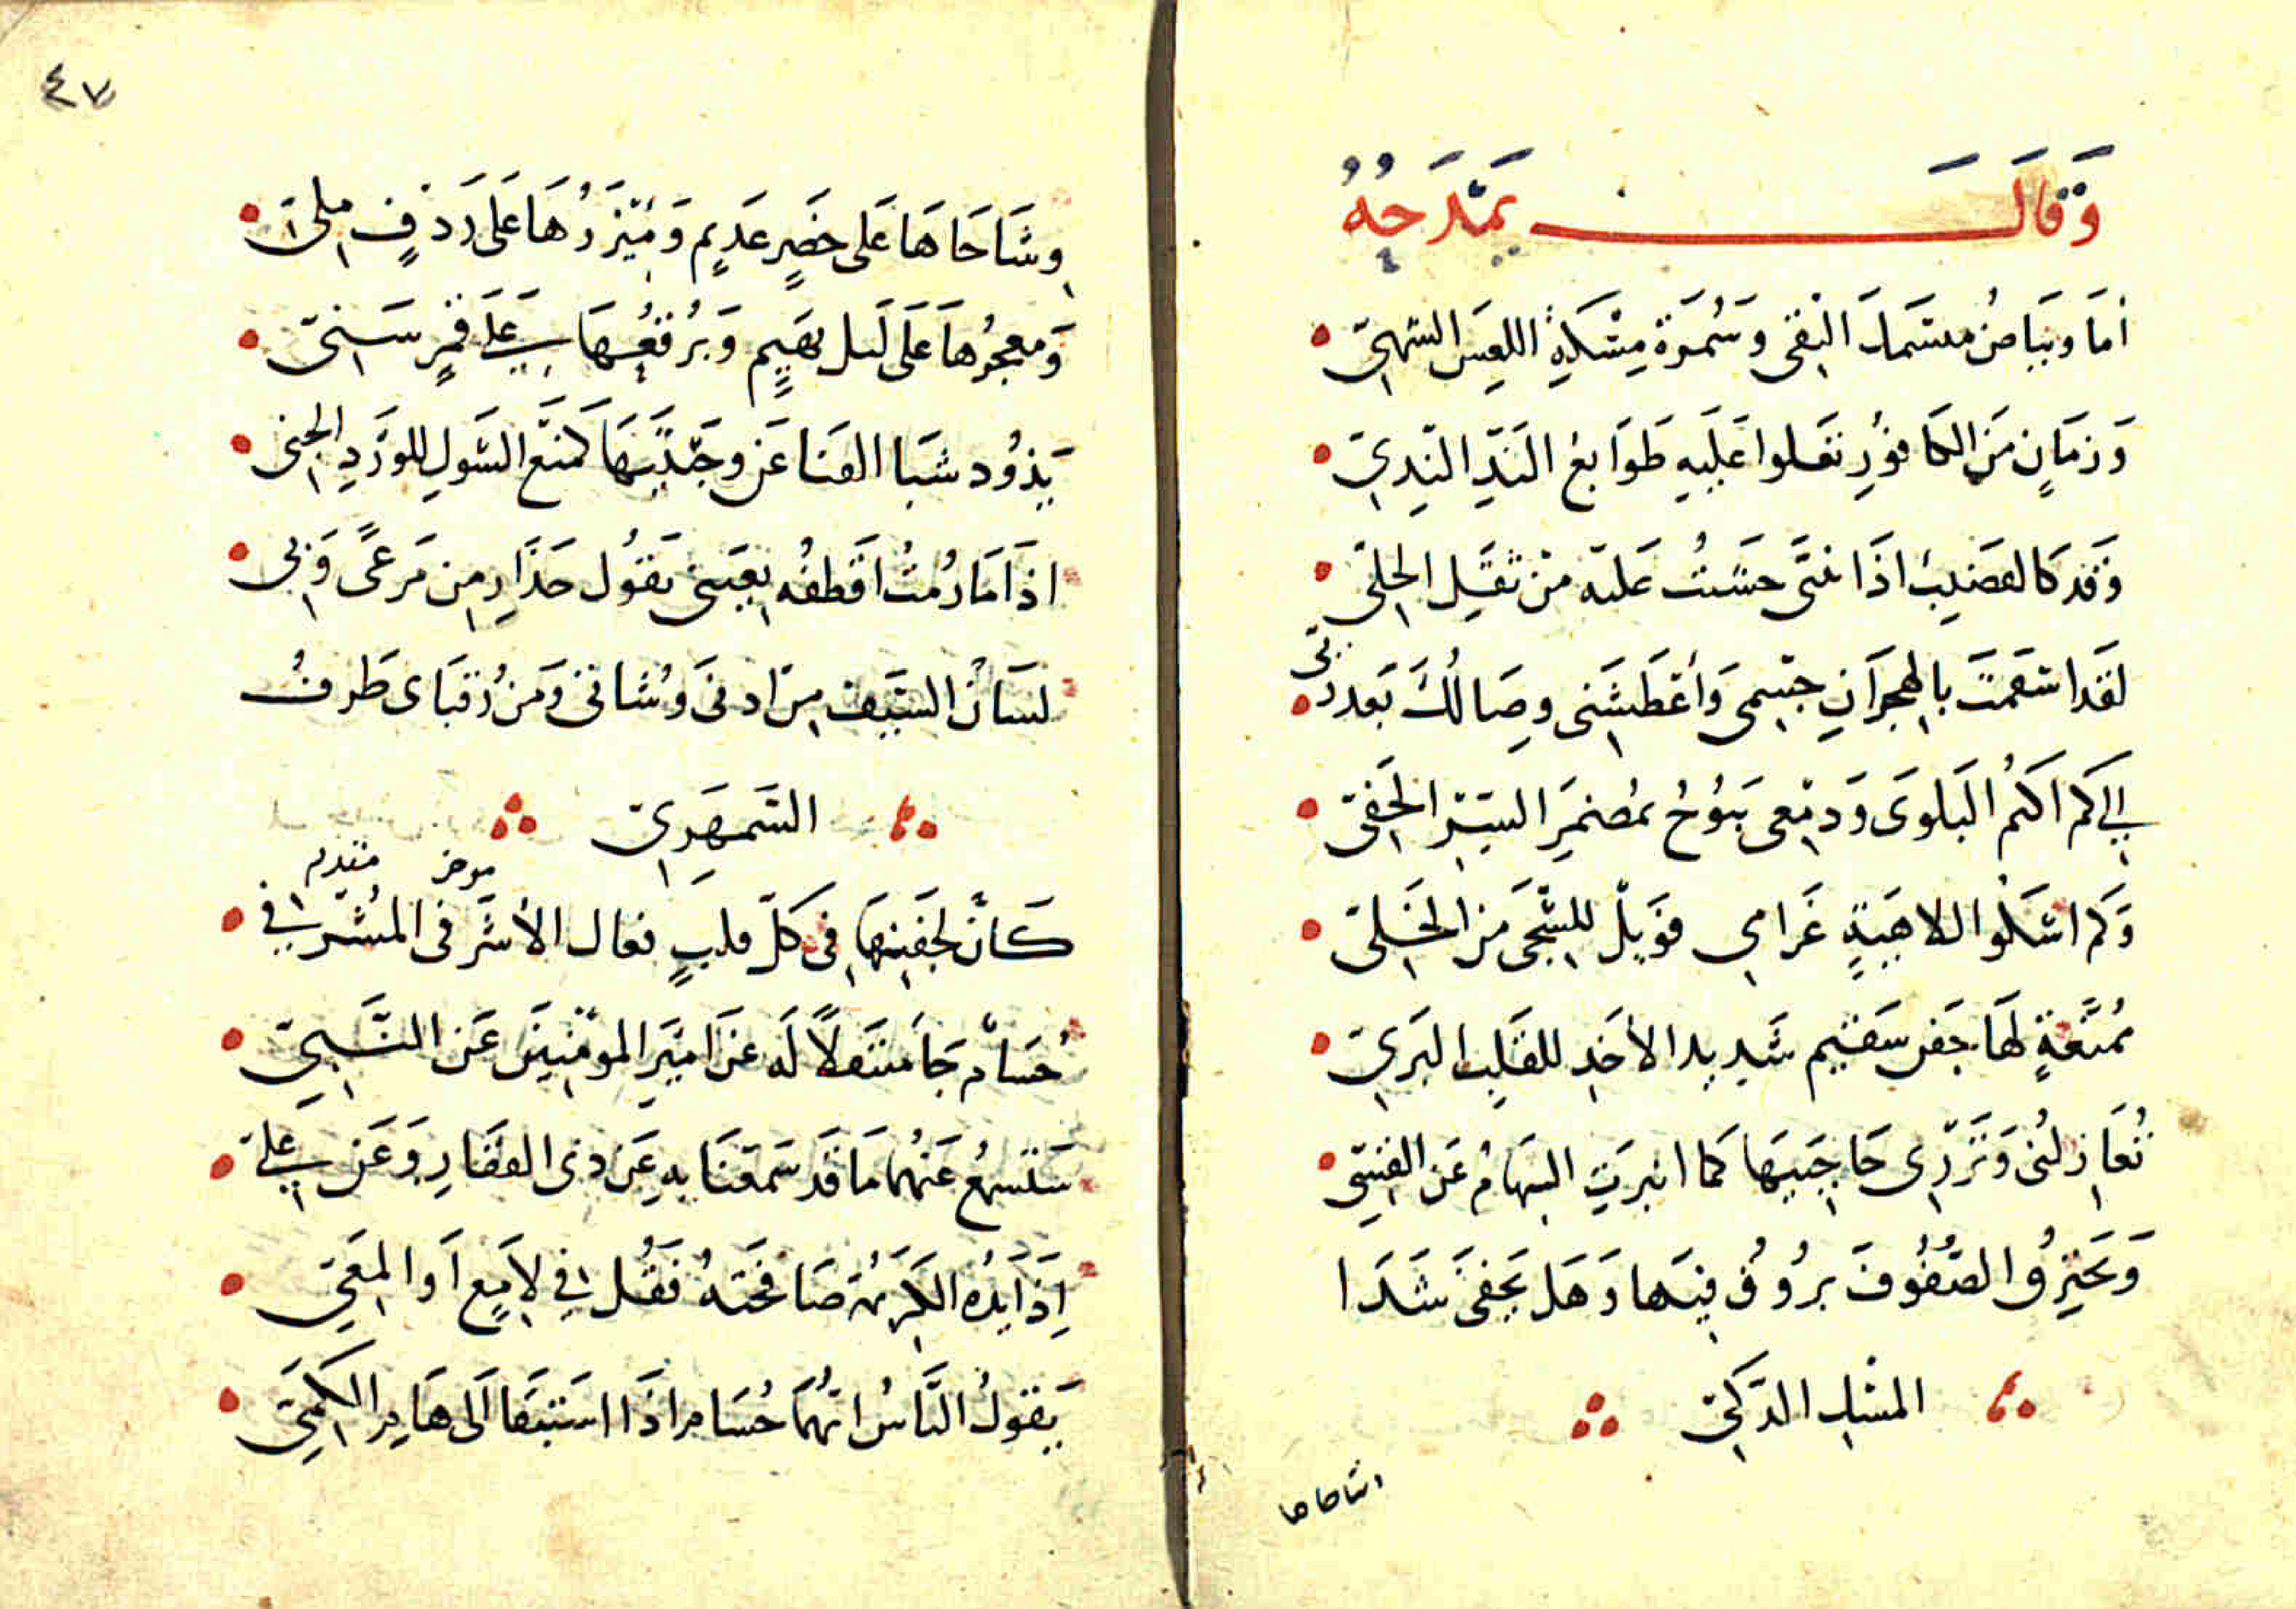 وَقَالَ يَمْدَحُهُ
أمَا وبَيَاضُ مبسَمكَ النَّقى وَسُمرَة مِسْكَةِ اللعسِ الشهىّ
وَرمَانٍ مِنَ الكافورِ تعلوا عَلَيهِ طَوَابعُ النَدِّ النّدىّ
وَقد كالقضيب اذَا تثنَّى خَشيتُ عَليه من ثقَلِ الحلىّ
لقَد اسقمتَ بالهجرَانِ جسمى وَأعْطَشَنى وِصَالكَ بَعد رىّ
الى كم اكتم البَلوَى وَدمعى يَبُوحُ بمُضمَرِ السّرّ الخَفىّ
وَكم اشكُوا للاهيَةٍ غَرامى فوَيلٌ للشّجى منَ الخَلىّ
مُمَنَّعَةٍ لهَا جَفن سَقيم شَديد الأخذِ للقَلبِ البَرىّ
تُغَازلنى وَتَزوى حَاجبَيهَا كمَا انبرَتِ السهَامُ عَن القسىّ
وَيخترقُ الصُّفُوفَ بروُق فيهَا وَهَل يَخفَى شَذَا
المسْكِ الذّكىّ
اشاحاها
٤٧
وِشَاحَاهَا عَلى خَصرٍ عَديم وَمئزرُهَا عَلى رَدفٍ ملىّ
وَمعجرُهَا عَلَى لَيل بَهيمٍ وَبُرقعُهَا عَلى قمَرٍ سَنىّ
يَذوُد شَبَا القنا عَن وجنَتَيهَا كمنَعِ الشَوكِ للوَرْدِ الجنى
اذَا مَا رُمتُ اقَطفُه بعَينى يَقوُل حَذَارِ من مَرعًى وَبى
لسَانُ السّيف من ادنى وُشاتى وَمن رُقبَاى طَرفُ
السّمهَرىّ
موخر مقدم
كَانَّ لجفنهَا فى كلّ قلبٍ فعال الأشرَفى المُشرَافى
حُسَامٌ جَا منتَقلاً لَه عَن امير المؤمنينَ عَن النَّبىّ
سَنَسمعُ عَنهُما مَا قَد سَمعنَا بهِ عَن ذى الفقَارِ وَعَن عَلى
اِذَا يَدُه الكريمَة صَافحَتهُ فَقُل فى لامِعٍ أو المعىّ
يَقولُ النَّاسُ انّهُمَا حُسَام اذَا استَبَقَا الَى هَامِ الكمىّ